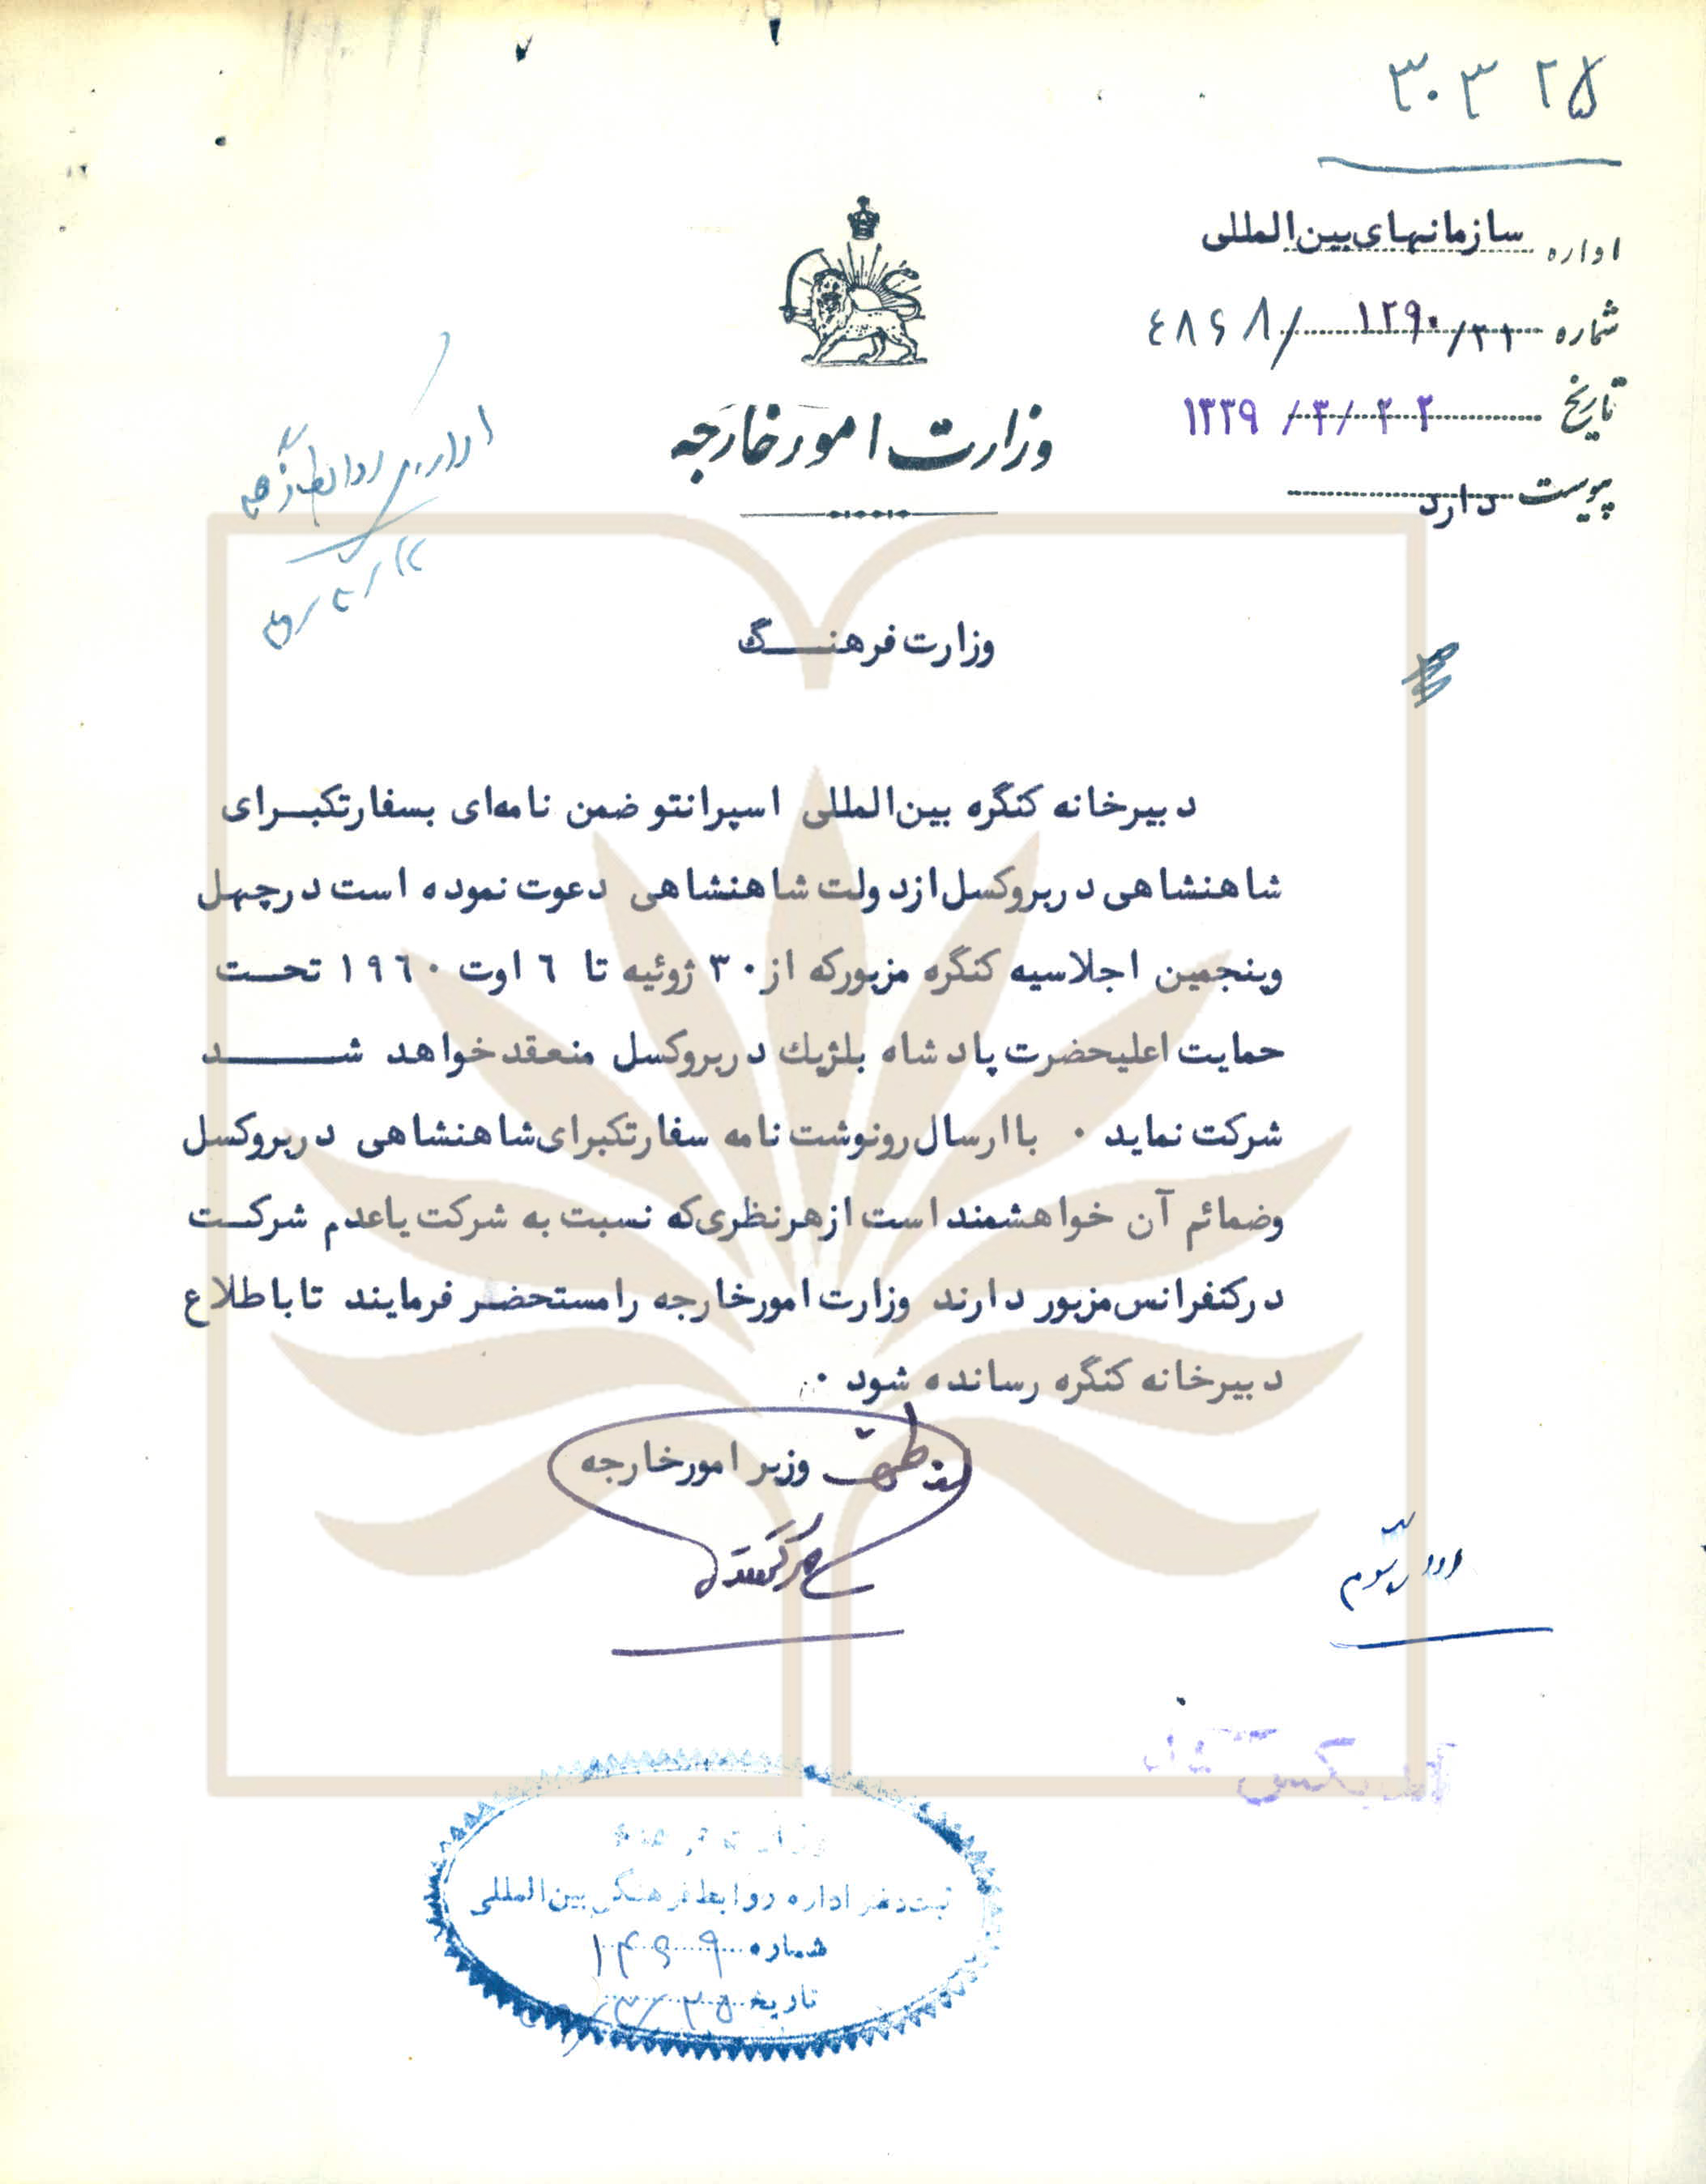 ۳۰۳۲۵
اداره سازمانهای بین‌المللی
شماره ۳۱/ ۱۲۹۰ /٤٨۶٨
تاریخ ۲۲ /۳/ ۱۳۳۹
پیوست دارد
وزارت امور خارجه
اداره روابط فرهنگی
وزارت فرهنگ
دبیرخانه کنگره بین‌المللی اسپرانتو ضمن نامه‌ای بسفارتکبرای
شاهنشاهی دربروکسل ازدولت شاهنشاهی دعوت نموده است درچهل
وپنجمین اجلاسیه کنگره مزبورکه از ۳۰ ژوئیه تا ٦ اوت ۱۹٦۰ تحت
حمایت اعلیحضرت پادشاه بلژیك دربروکسل منعقد خواهد شد
شرکت نماید ۰ باارسال رونوشت نامه سفارتکبرای شاهنشاهی دربروکسل
وضمائم آن خواهشمند است ازهرنظری‌که نسبت به شرکت یاعدم شرکت
درکنفرانس مزبور دارند وزارت امورخارجه رامستحضر فرمایند تاباطلاع
دبیرخانه کنگره رسانده شود ۰
وزیر امورخارجه
وزارت فرهنگ
ثبت دفتر اداره روابط فرهنگی بین‌المللی
شماره ۱۴۶۹
تاریخ